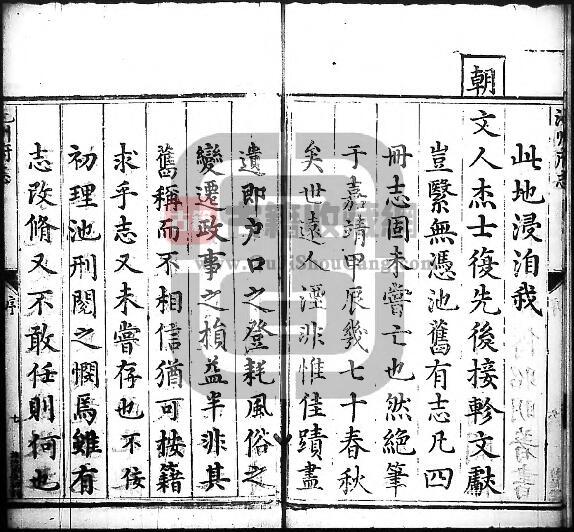 此地浸洎我
朝文人杰士復先後接軫文獻
豈繄無憑池舊有志凡四
冊志固未嘗亡也然絕筆
于嘉靖甲辰幾七十春秋
矣世遠人湮非惟佳蹟盡
遺即户口之登耗風俗之
變遷政事之損益半非其
舊稱而不相信猶可按籍
求乎志又未嘗存也不佞
初理池刑閱之憫焉雖有
志改脩又不敢任則何也
序